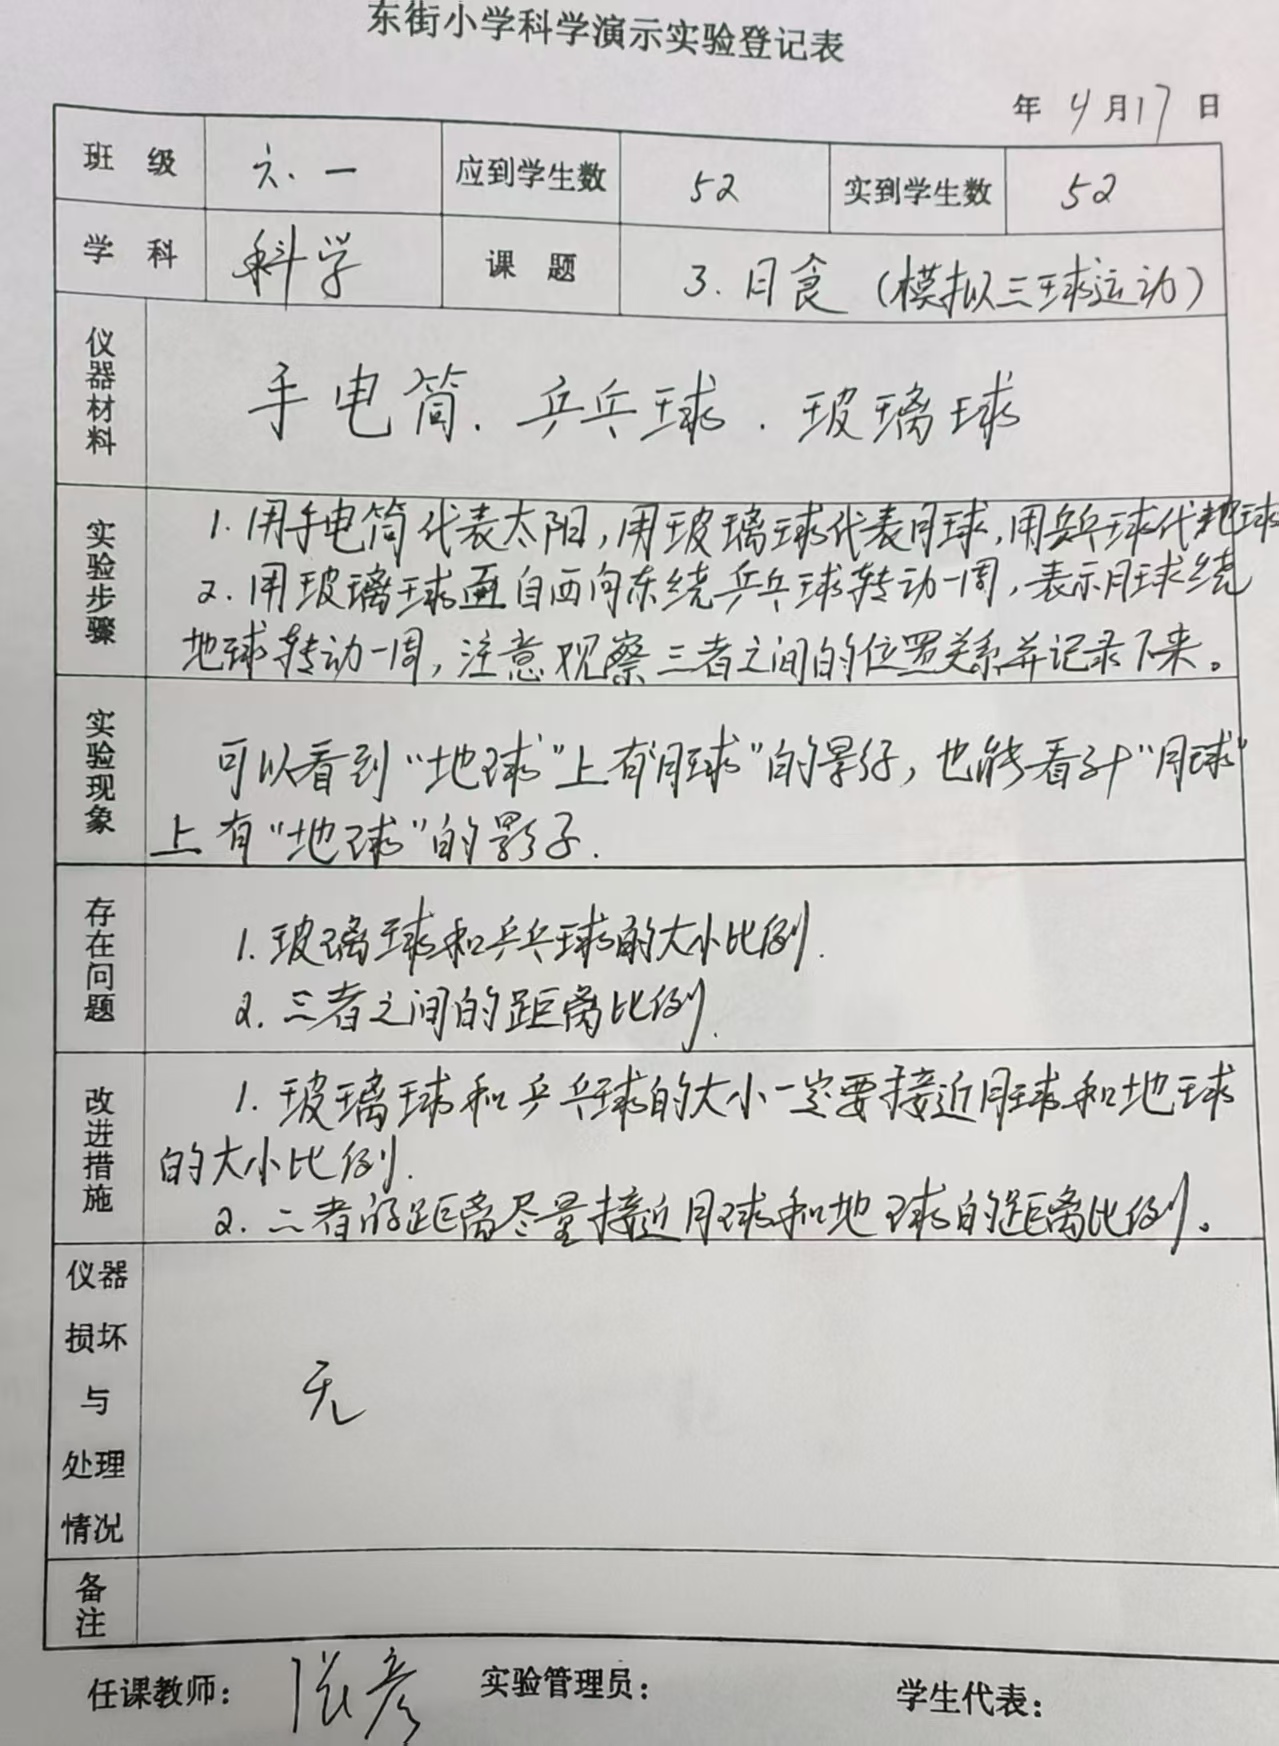 东街小学科学演示实验登记表
年 4 月 17 日
班 级 六.一 应到学生数 52 实到学生数 52
学 科 科学 课 题 3.日食（模拟三球运动）
仪器材料 手电筒.乒乓球.玻璃球
实验步骤
1.用手电筒代表太阳，用玻璃球代表月球，用乒乓球代地球
2.用玻璃球自西向东绕乒乓球转动一周，表示月球绕
地球转动一周，注意观察三者之间的位置关系并记录下来。
实验现象
可以看到“地球”上有“月球”的影子，也能看到“月球”
上有“地球”的影子.
存在问题
1.玻璃球和乒乓球的大小比例.
2.三者之间的距离比例.
改进措施
1.玻璃球和乒乓球的大小一定要接近月球和地球
的大小比例.
2.二者的距离尽量接近月球和地球的距离比例。
仪器
损坏
与
处理
情况
无
备注
任课教师：张彦 实验管理员： 学生代表：